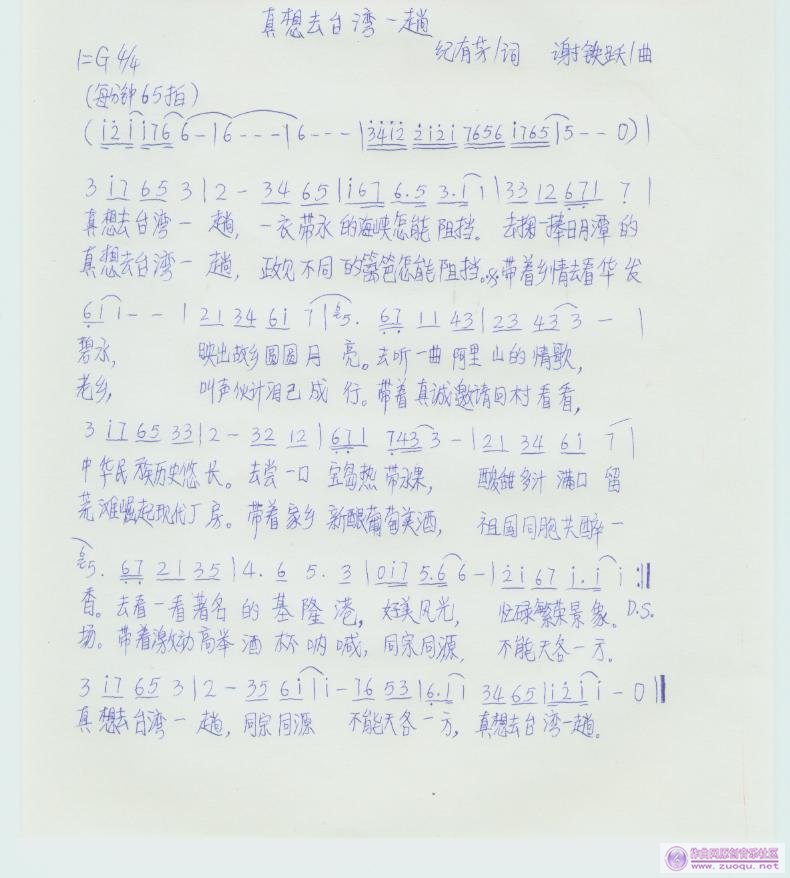 真想去台湾一趟
纪有芳/词 谢铁跃/曲
1=G 4/4
(每分钟65拍)
(i̇2̇i̇i̇76 6-|6---|6---|3̇4̇i̇2̇ 2̇i̇2̇i̇ 7656 i̇765|5--0)|
3 i̇7 65 3|2- 34 65|i̇67 6.5 3.i̇ i̇|33 12 671 ? |
真想去台湾一 趟, 一衣带水 的海峡怎能 阻挡。 去掬一捧日月潭 的
真想去台湾一 趟, 政见不同 的篱笆怎能 阻挡。带着乡情去看华 发
6i̇ i̇ - - | 21 34 6i̇ 7|65. 67 11 43|23 43 3 - |
碧水, 映出故乡圆圆月 亮。去听一曲 阿里 山的 情歌,
老乡, 叫声伙计自己 成 行。带着真诚邀请回村 看看,
3 i̇7 65 33|2- 32 12|671 743 3-|21 34 6i̇ 7|
中华民族历史悠 长。去尝一口 宝岛热 带水果, 酸甜多汁 满口 留
荒滩崛起现代厂 房。带着家乡 新酿葡萄美酒, 祖国同胞共醉 一
65. 67 21 35|4. 6 5. 3|0i̇7 5.6 6-|2̇i̇ 67 i̇.i̇ i̇:‖
香。去看一看著名 的 基 隆 港, 好美风光, 忙碌繁荣景 象。D.S.
场。带着激动高举 酒 杯 呐 喊, 同宗同源, 不能天各一 方。
3 i̇7 65 3|2- 35 6i̇|i̇- 76 53|6.i̇ i̇ 34 65|i̇2̇i̇ i̇ - 0‖
真想去台湾一 趟, 同宗同源 不能天各 一 方, 真想去台 湾一趟。
作曲网原创音乐社区
www.zuoqu.net